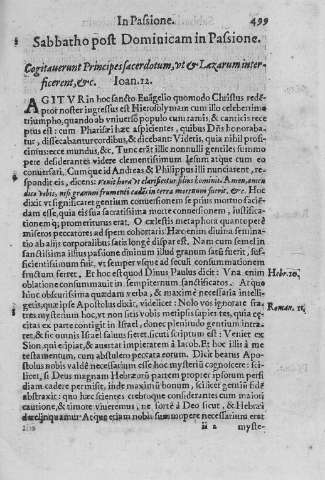 In Passione. 499
Sabbatho post Dominicam in Passione.
Cogitauerunt Principes sacerdotum, vt & Lazarum inter-
ficerent, &c. Ioan. 12.
AGITVR in hoc sancto Euãgelio quomodo Christus rede-
ptor noster ingressus est Hierosolymam cum illo celeberrimo
triumpho, quando ab vniuerso populo cum ramis, & canticis rece
ptus est: cum Pharisæi hæc aspicientes, quibus Dñs honoraba-
tur, dissecabantur cordibus, & dicebant: Videtis, quia nihil profi-
cimus: ecce mundus, &c. Tunc erãt ille nonnulli gentiles summo-
pere desiderantes videre clementissimum Iesum atque cum eo
conuersari. Cumque id Andreas & Philippus illi nunciasent, re-
spondit eis, dicens: venit hora vt clarificetur filius hominis. Amen, amen
dico vobis, nisi granum frumenti cadẽs in terra mortuum fuerit, &c. Hoc
dixit vt significaret gentium conuersionem se prius mortuo faciẽ-
dam esse, quia eis sua sacratissima morte conuersionem, iustifica-
tionem q; promeriturus erat. O cælestis metaphora quantoperè
miseros peccatores ad spem cohortaris: Hæc enim diuina semina-
tio ab alijs corporalibus satis longè dispar est. Nam cum semel in
sanctissima illius passione diuinum illud granum satũ fuerit, suf-
ficientissimum fuit, vt semper vsque ad sæculi consummationem
fructum ferret. Et hoc est quod Diuus Paulus dicit: Vna enim Hebr. 10.
oblatione consummauit in sempiternum sanctificatos. Atque
hinc obscurissima quædam verba, & maximè necessaria intelli-
getis, quæ ipse Apostolus dicit, videlicet: Nolo vos ignorare fra-
tres mysterium hoc, vt non sitis vobis metipsis sapientes, quia cę- Roman. 11.
citas ex parte contigit in Israel, donec plenitudo gentium intra-
ret, & sic omnis Israel saluus fieret, sicuti scriptum est: Veniet ex
Sion, qui eripiat, & auertat impietatem à Iacob. Et hoc illis à me
testamentum, cum abstulero peccata eorum. Dicit beatus Apo-
stolus nobis valdè necessarium esse hoc mysteriũ cognoscere: sci-
licet, si Deus magnam Hebræorũ partem propter ipsorum persi
diam cadere permisit, inde maximũ bonum, scilicet gentiũ fidẽ
abstraxit: quo hæc scientes crebroque considerantes cum maiori
cautione, & timore viueremus, ne fortè à Deo sicut, & Hebræi
derelinquamur. Atque etiam nobis summopere necessarium erat
ii 2 myste-